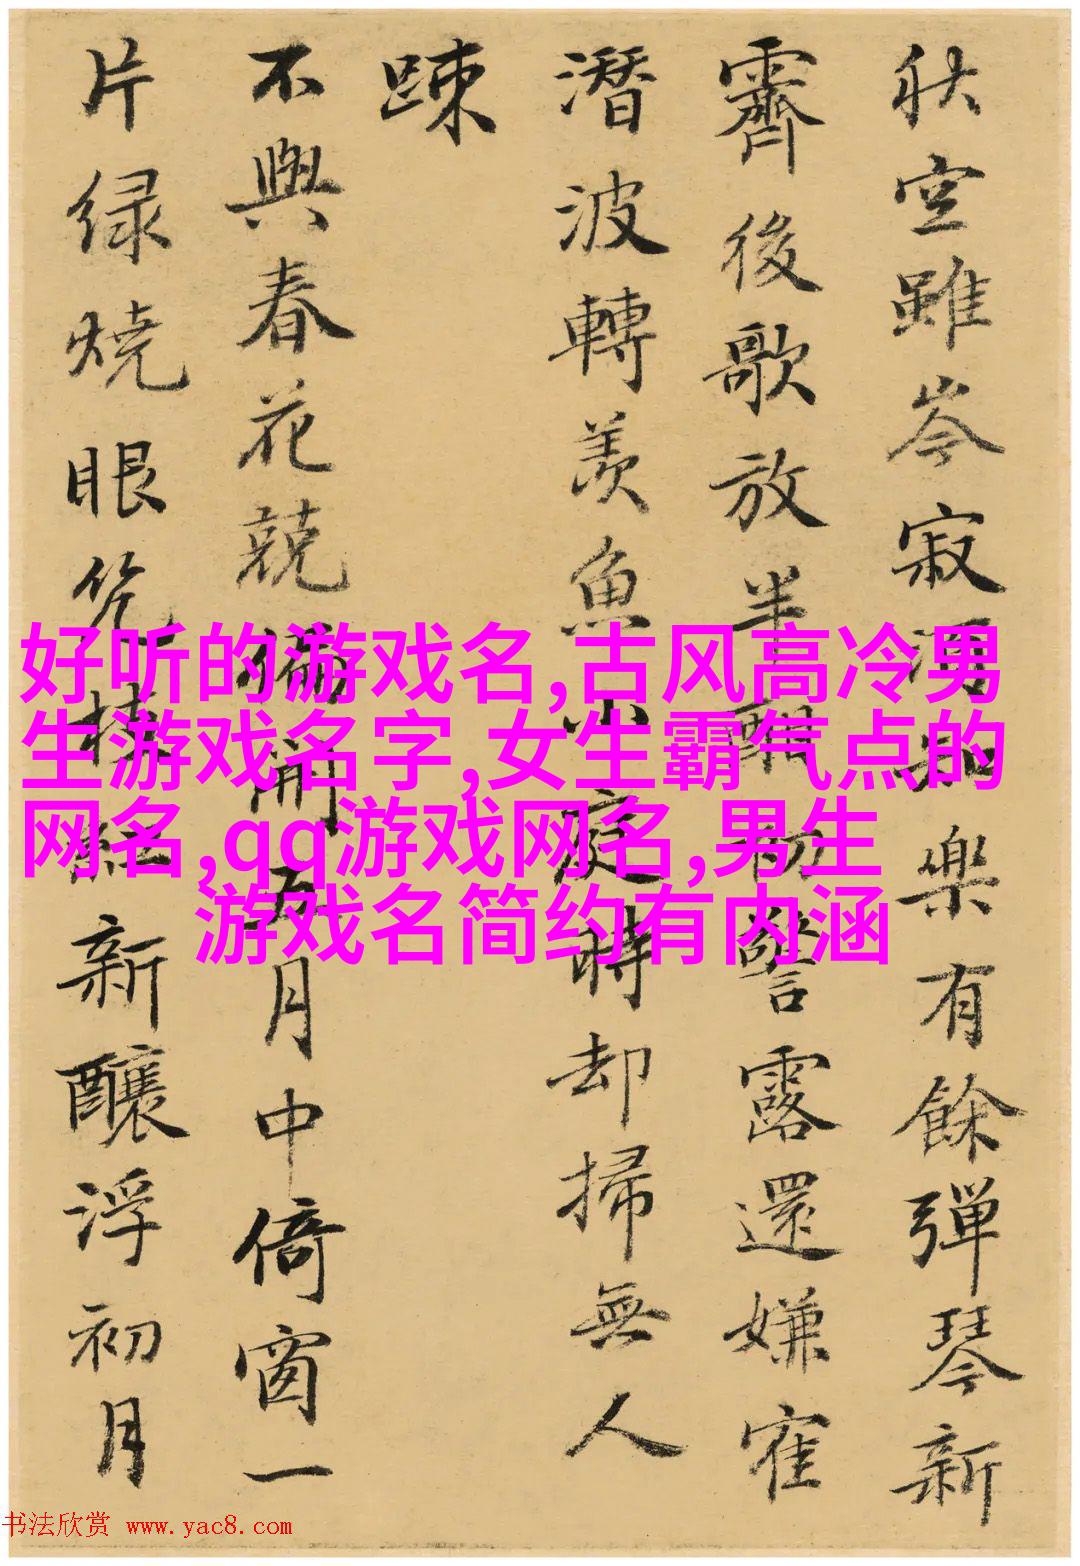 秋空雖岑寂酒樂有餘彈琴新
霽後歌放半酣初警露還嫌寉
潛波轉羨魚小庭時却掃無人
踈
不與春花競偏開五月中倚窗一
片绿燒眼枝紅新釀浮初月
好听的游戏名,古风高冷男
生游戏名字,女生霸气点的
网名,qq游戏网名,男生
游戏名简约有内涵
书法欣赏 www.yac8.com